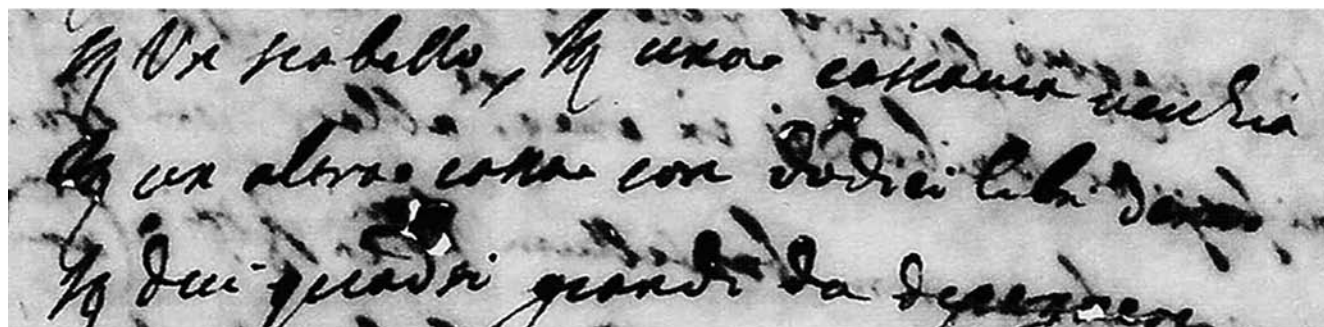 It Un scabello, It una cassaccia vecchia
It un altra cassa con dodici libri dentro
It dui quadri grandi da depengere